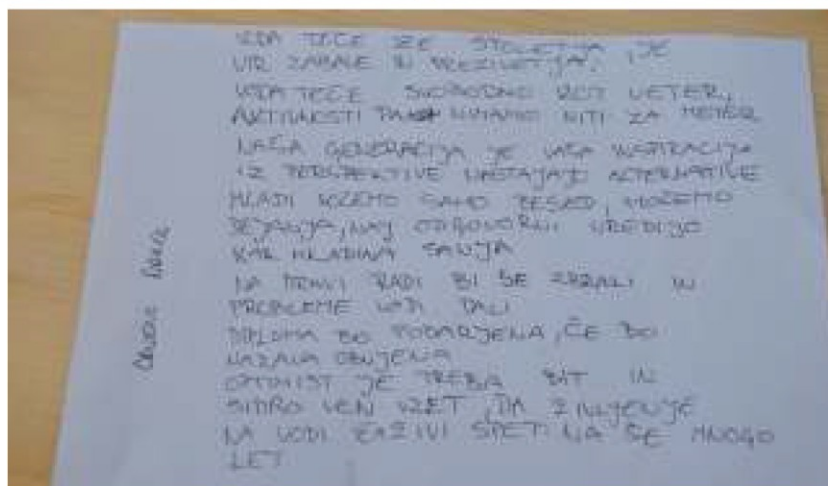 VODA TEČE ŽE STOLETJA, JE
VIR ZABAVE IN PREŽIVETJA.
VODA TEČE SVOBODNO KOT VETER,
AKTIVNOSTI PA NIMAMO NITI ZA METER
NAŠA GENERACIJA JE VAŠA INSPIRACIJA
IZ PERSPEKTIVE NASTAJAJO ALTERNATIVE
MLADI NOČEMO SAMO BESED, HOČEMO
DEJANJA, NAJ ODGOVORNI UREDIJO
KAR MLADINA SANJA
NA DRAVI RADI BI SE ZBRALI IN
PROBLEME VODI DALI
DIPLOMA BO PODARJENA, ČE BO
OBUJENA
OPTIMIST JE TREBA BIT IN
SIDRO VEN VZET, DA ŽIVLJENJE
NA VODI ZAŽIVI SPET NA ŠE MNOGO
LET